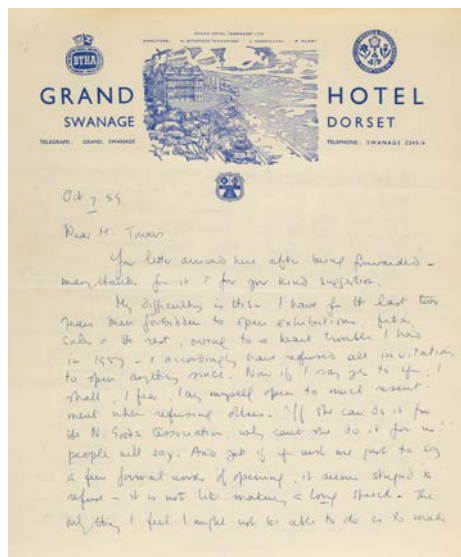 GRAND HOTEL (SWANAGE) LTD
BTHA
GRAND HOTEL
SWANAGE DORSET
TELEGRAMS: GRAND, SWANAGE TELEPHONE: SWANAGE
Oct 7. 59
Dear Mr. Towers
Your letter arrived here after being forwarded –
many thanks for it & for your kind suggestion.
My difficulty is this – I have for the last two
years been forbidden to open exhibitions, fetes,
Sales & the rest, owing to a heart trouble I had
in 1957 – & accordingly have refused all invitations
to open anything since. Now if I say yes to you, I
shall, I fear, lay myself open to much resent-
ment when refusing others. "If she can do it for
the N. Association, why can't she do it for us"
people will say. And yet if you wish me just to say
a few formal words of opening, it seems stupid to
refuse – it is not like making a long speech. The
only thing I feel I might not be able to do is to